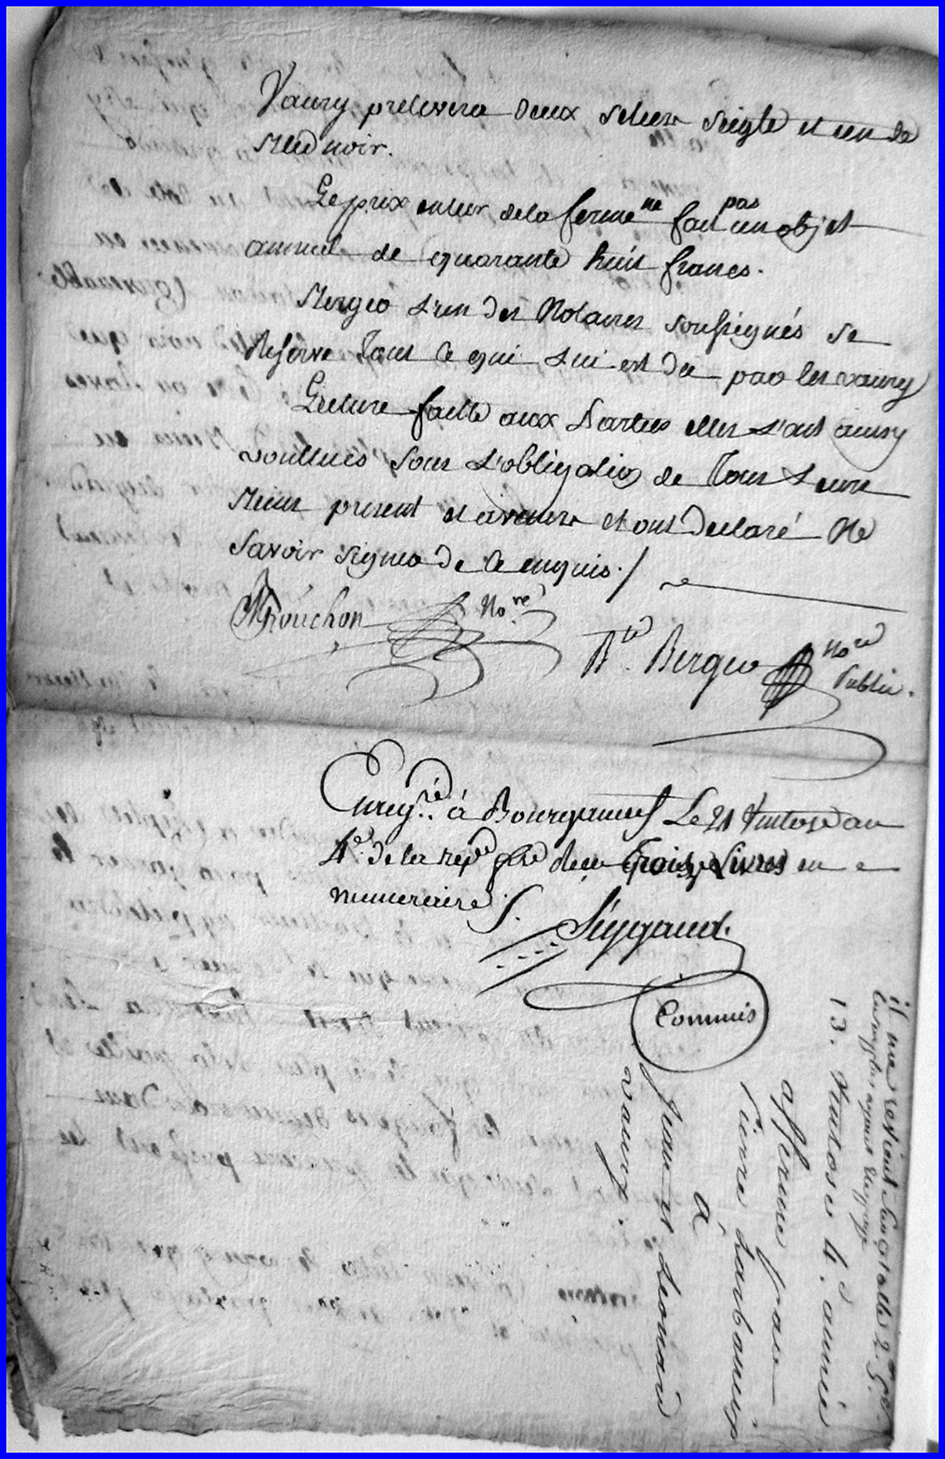 Vaury prelevera deux setiers seigle et un de
bled noir.
Le prix entier de la ferme ne fait pas un objet
annuel de quarante huit francs.
Bergeo l'un des Notaires soussignés se
Reserve Tout ce qui lui est du par les vaury
Lecture faitte aux Parties elles l'ont ainsy
voullues sous l'obligation de Tous Leurs
Biens present et avenir et ont declaré Ne
savoir signer de ce enquis. /
Trouchon No.re
B.te Bergeo No.re
Public.
Enreg.ré à Bourganeuf Le 21 Ventose an
4.e de la rep.e f.se reçu trois Livres en
numeraire
Commis
il me revient
13. Ventose 4.e année
afferme par
Pierre
à
Jean et Leonard
vaury.